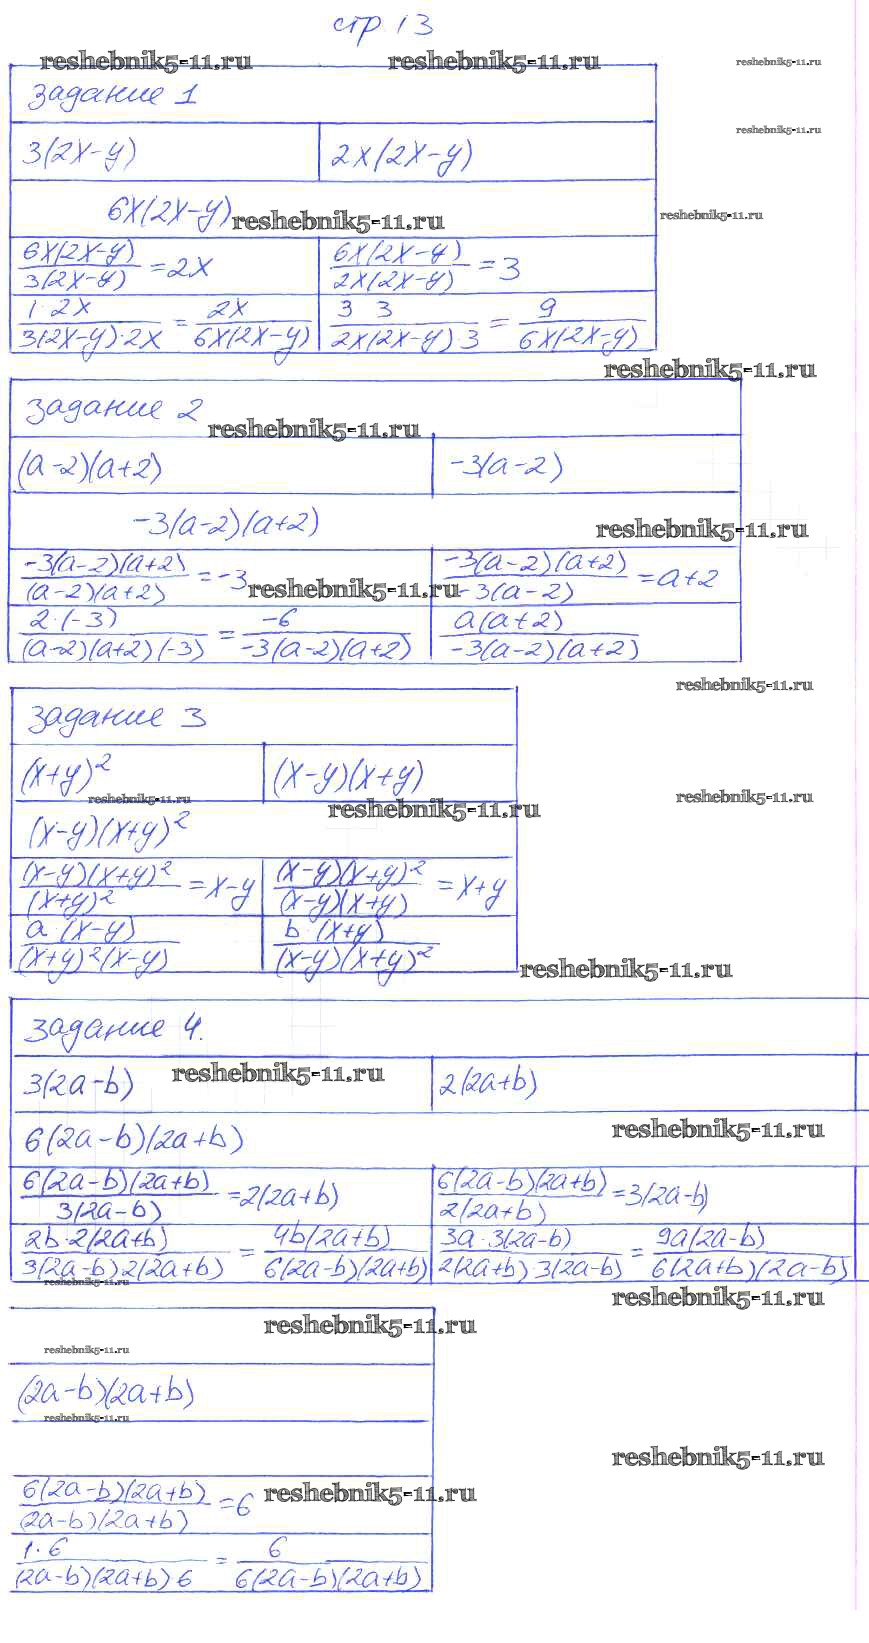 стр 13
reshebnik5-11.ru reshebnik5-11.ru reshebnik5-11.ru
задание 1
reshebnik5-11.ru
3(2x-y) 2x(2x-y)
6x(2x-y) reshebnik5-11.ru reshebnik5-11.ru
6x(2x-y)/3(2x-y) = 2x 6x(2x-y)/2x(2x-y) = 3
1·2x/3(2x-y)·2x = 2x/6x(2x-y) 3 3/2x(2x-y)·3 = 9/6x(2x-y)
reshebnik5-11.ru
задание 2
reshebnik5-11.ru
(a-2)(a+2) -3(a-2)
-3(a-2)(a+2) reshebnik5-11.ru
-3(a-2)(a+2)/(a-2)(a+2) = -3 reshebnik5-11.ru -3(a-2)(a+2)/-3(a-2) = a+2
2·(-3)/(a-2)(a+2)(-3) = -6/-3(a-2)(a+2) a(a+2)/-3(a-2)(a+2)
reshebnik5-11.ru
задание 3
(x+y)² (x-y)(x+y)
reshebnik5-11.ru reshebnik5-11.ru reshebnik5-11.ru
(x-y)(x+y)²
(x-y)(x+y)²/(x+y)² = x-y (x-y)(x+y)²/(x-y)(x+y) = x+y
a·(x-y)/(x+y)²(x-y) b·(x+y)/(x-y)(x+y)²
reshebnik5-11.ru
задание 4.
reshebnik5-11.ru
3(2a-b) 2(2a+b)
reshebnik5-11.ru
6(2a-b)(2a+b)
6(2a-b)(2a+b)/3(2a-b) = 2(2a+b) 6(2a-b)(2a+b)/2(2a+b) = 3(2a-b)
2b·2(2a+b)/3(2a-b)2(2a+b) = 4b(2a+b)/6(2a-b)(2a+b) 3a·3(2a-b)/2(2a+b)·3(2a-b) = 9a(2a-b)/6(2a+b)(2a-b)
reshebnik5-11.ru reshebnik5-11.ru
reshebnik5-11.ru
reshebnik5-11.ru
(2a-b)(2a+b)
reshebnik5-11.ru
reshebnik5-11.ru
6(2a-b)(2a+b)/(2a-b)(2a+b) = 6 reshebnik5-11.ru
1·6/(2a-b)(2a+b)6 = 6/6(2a-b)(2a+b)